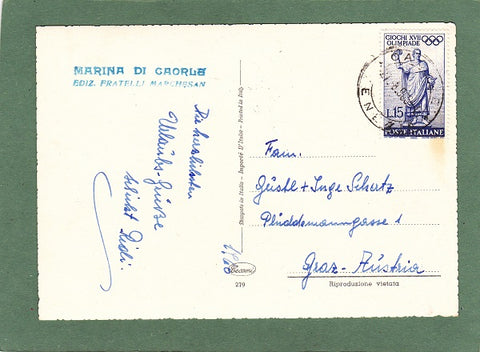 MARINA DI CAORLE
EDIZ. FRATELLI MARCHESAN
Die herzlichsten
Urlaubs-Grüsse
schickt Didi.
1960
Stampato in Italia - Importé D'Italie - Printed in Italy
279
GIOCHI XVII
OLIMPIADE
L.15
POSTE ITALIANE
Fam.
Güstl + Inge Schertz
Plüddemanngasse 1
Graz-Austria
Riproduzione vietata